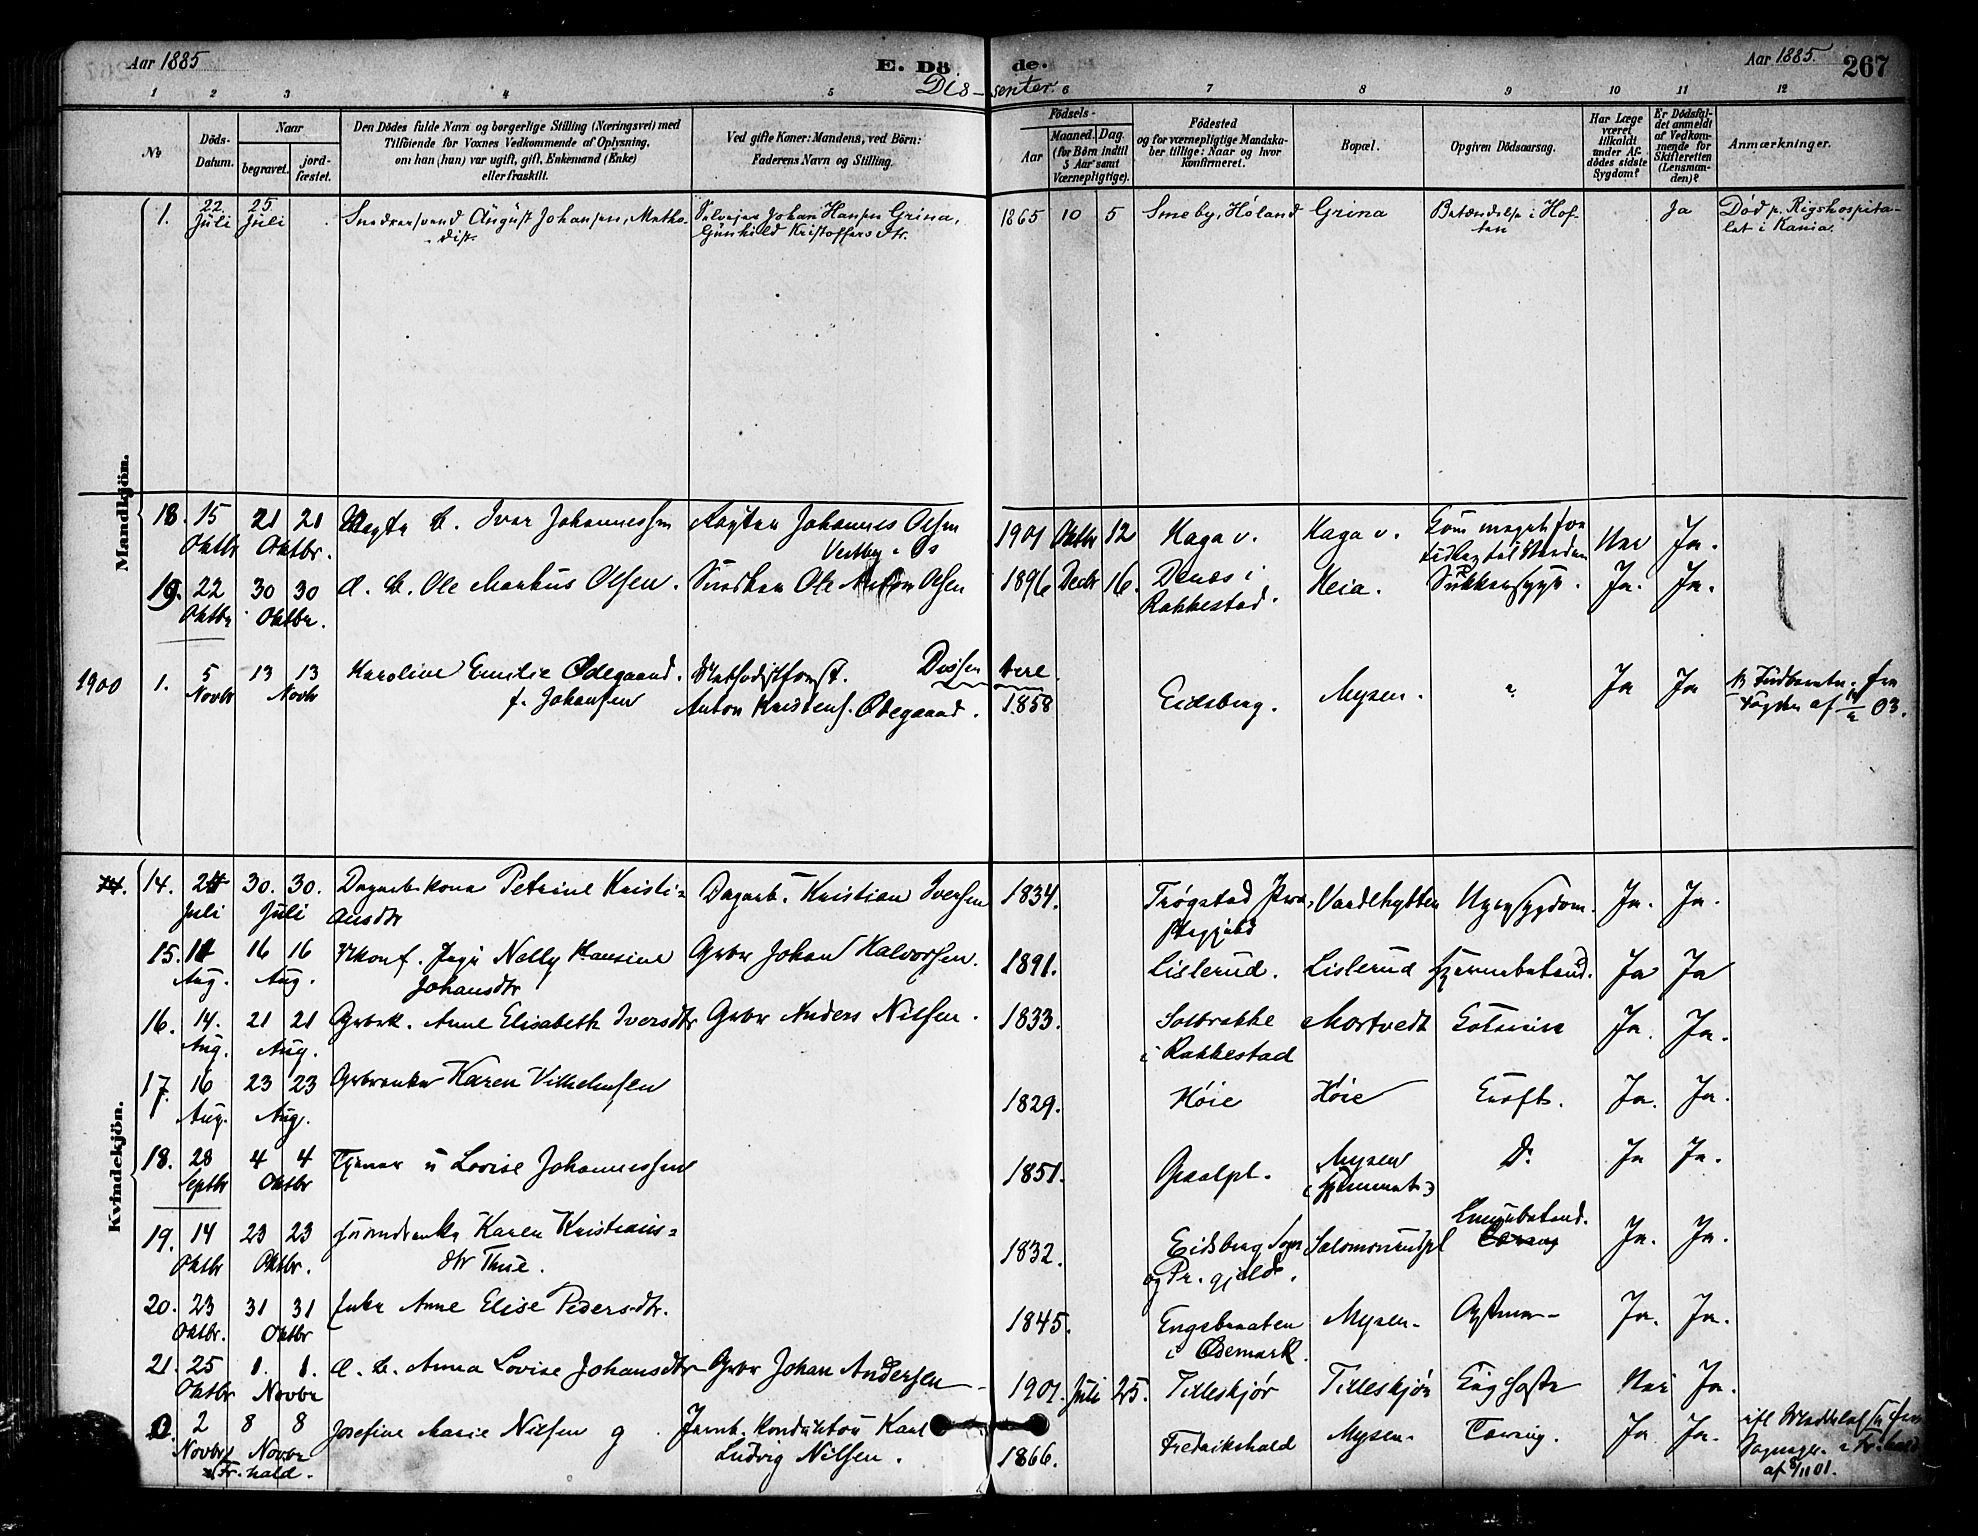 Aar 1885
E. Dö
de.
Aar 1885.
267
Dis-
senter.
1 2 3 4 5 6 7 8 9 10 11 12
№
Döds-
Datum.
Naar
begravet.
jord-
fæstet.
Den Dödes fulde Navn og borgerlige Stilling (Næringsvei) med
Tilföiende for Voxnes Vedkommende af Oplysning,
om han (hun) var ugift, gift, Enkemand (Enke)
eller fraskilt.
Ved gifte Koner: Mandens, ved Börn:
Faderens Navn og Stilling.
Födsels-
Aar
Maaned. Dag.
(for Börn indtil
5 Aar samt
Værnepligtige).
Födested
og for værnepligtige Mandska-
ber tillige: Naar og hvor
Konfirmeret.
Bopæl.
Opgiven Dödsaarsag.
Har Læge
været
tilkaldt
under Af-
dödes sidste
Sygdom?
Er Dödsfal-
det anmeldt
af Vedkom-
mende for
Skifteretten
(Lensman-
den)?
Anmærkninger.
Mandkjön.
1. 22 Juli 25 Juli August Johansen, Metho-
dist Johan Hansen Grina,
Gunhild Kristoffersdtr. 1865 10 5 Smeby, Höland Grina Betændelse i Hof-
ten Ja Död p. Rigshospita-
let i Kania.
18. 15 Oktbr 21 21 Oktbr. Ivar Johannessen Johannes Olsen
Vestby i Os 1901 Oktbr 12 Haga v. Haga v. Nei Ja.
19. 22 Oktbr 30 30 Oktbr. Ole Markus Olsen. Ole Anton Olsen 1896 Decbr 16. Denes i
Rakkestad. Heia. Ja. Ja.
1900 1. 5 Novbr 13 13 Novbr Karoline Emilie Ødegaard.
f. Johansen Methodistforst.
Anton Kristens. Ødegaard. Dissen tere.
1858 Eidsberg. Mysen. " Ja Ja fra
Fogden af 03.
Kvindekjön.
14. Juli 30. 30. Juli Dagarb.kone Petrine Kristi-
ansdtr Dagarb. Kristian Iversen 1834. Trøgstad
Vardehytten Ja. Ja.
15. Aug. 16 16 Aug. Ukonf. Pige Nelly Hansine
Johansdtr Gbr Johan Halvorsen. 1891. Lislerud. Lislerud Hjernebetænd. Ja Ja
16. 14. Aug. 21 21 Aug. Gbrk. Anne Elisabeth Iversdtr Gbr Anders Nilsen. 1833. Solbrække
i Rakkestad Mortvedt Ja. Ja.
17. 16 Aug. 23 23 Aug. Gbrenke Karen Vilhelmsen 1829. Høie Høie Kræft. Ja. Ja.
18. 28 Septbr 4 4 Oktbr Tjener u Lovise Johannessen 1851. Mysen D. Ja Ja.
19. 14 Oktbr 23 23 Oktbr. Karen Kristians-
dtr Thue. 1832. Eidsberg Sogn
og Pr.gjeld. Lungebetænd. Ja. Ja.
20. 23 Oktbr. 31 31 Oktbr Enke Anne Elise Pedersdtr. 1845. Engebraaten
i Ødemark. Mysen. Ja. Ja.
21. 25 Oktbr 1. 1. Novbr Anna Lovise Johansdtr Gbr Johan Andersen 1901. Juli 25. Tilleskjør Tilleskjør Kighoste Nei Ja.
2 Novbr 8 8 Novbr
Fr.hald. Josefine Marie Nilsen g Jernb. Konduktör Karl
Ludvig Nilsen. 1866. Fredrikshald Mysen. Tæring. Ja Ja.
i Fr.hald
af 8/11 01.